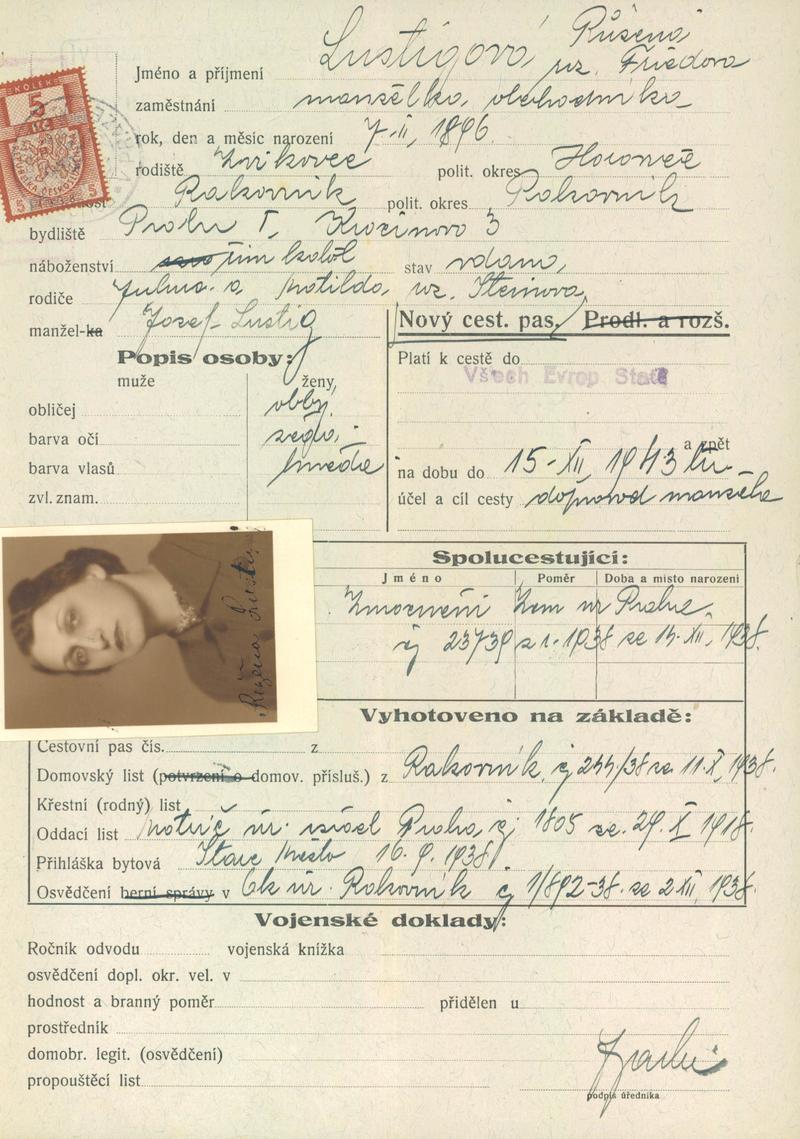 Lustigová Růžena
Jméno a příjmení roz. Friedova
KOLEK
5
Kč
zaměstnání manželka obchodníka
rok, den a měsíc narození 7-II, 1896.
rodiště Zvíkovec polit. okres Hořovice
Rakovník polit. okres Rakovník
bydliště Praha I, Krocínova 3
náboženství řím kátol stav vdaná,
rodiče Julius a Matilda, roz. Steinova,
manžel-ka Josef Lustig
Nový cest. pas. Prodl. a rozš.
Popis osoby:
Platí k cestě do
Všech Evrop Států
muže ženy
obličej obly.
barva očí šedá,
barva vlasů hnědé
zvl. znam.
a zpět
na dobu do 15-XII, 1943
účel a cíl cesty doprovod manžela
Růžena Lustig
Spolucestující:
Jméno Poměr Doba a místo narození
Zmocnění Zem úř Praha,
čj 23739 1938 ze 14.XII, 1938.
Vyhotoveno na základě:
Cestovní pas čís. z
Domovský list (potvrzení o domov. přísluš.) z Rakovník, čj 244/38 ze 11.X, 1938.
Křestní (rodný) list
Oddací list Matrič úř. Praha čj 1805 ze. 29. X 1918.
Přihláška bytová Staré Město 16.9.1938
Osvědčení berní správy v Ok úř. Rakovník čj 1/892-38 ze 2 XII, 1938.
Vojenské doklady:
Ročník odvodu vojenská knížka
osvědčení dopl. okr. vel. v
hodnost a branný poměr přidělen u
prostředník
domobr. legit. (osvědčení)
propouštěcí list
podpis úředníka